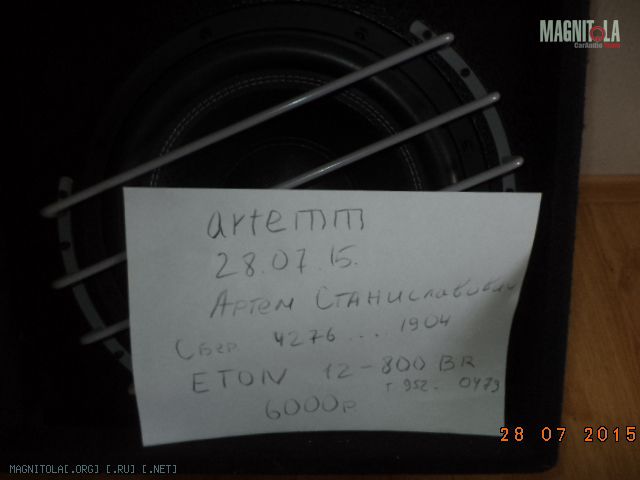 MAGNITOLA
CarAudio Team
artemm
28.07.15.
Артем Станиславович
Сбер 4276 .... 1904
ETON 12-800 BR
т 952. 0473
6000р
28 07 2015
MAGNITOLA[.ORG] [.RU] [.NET]